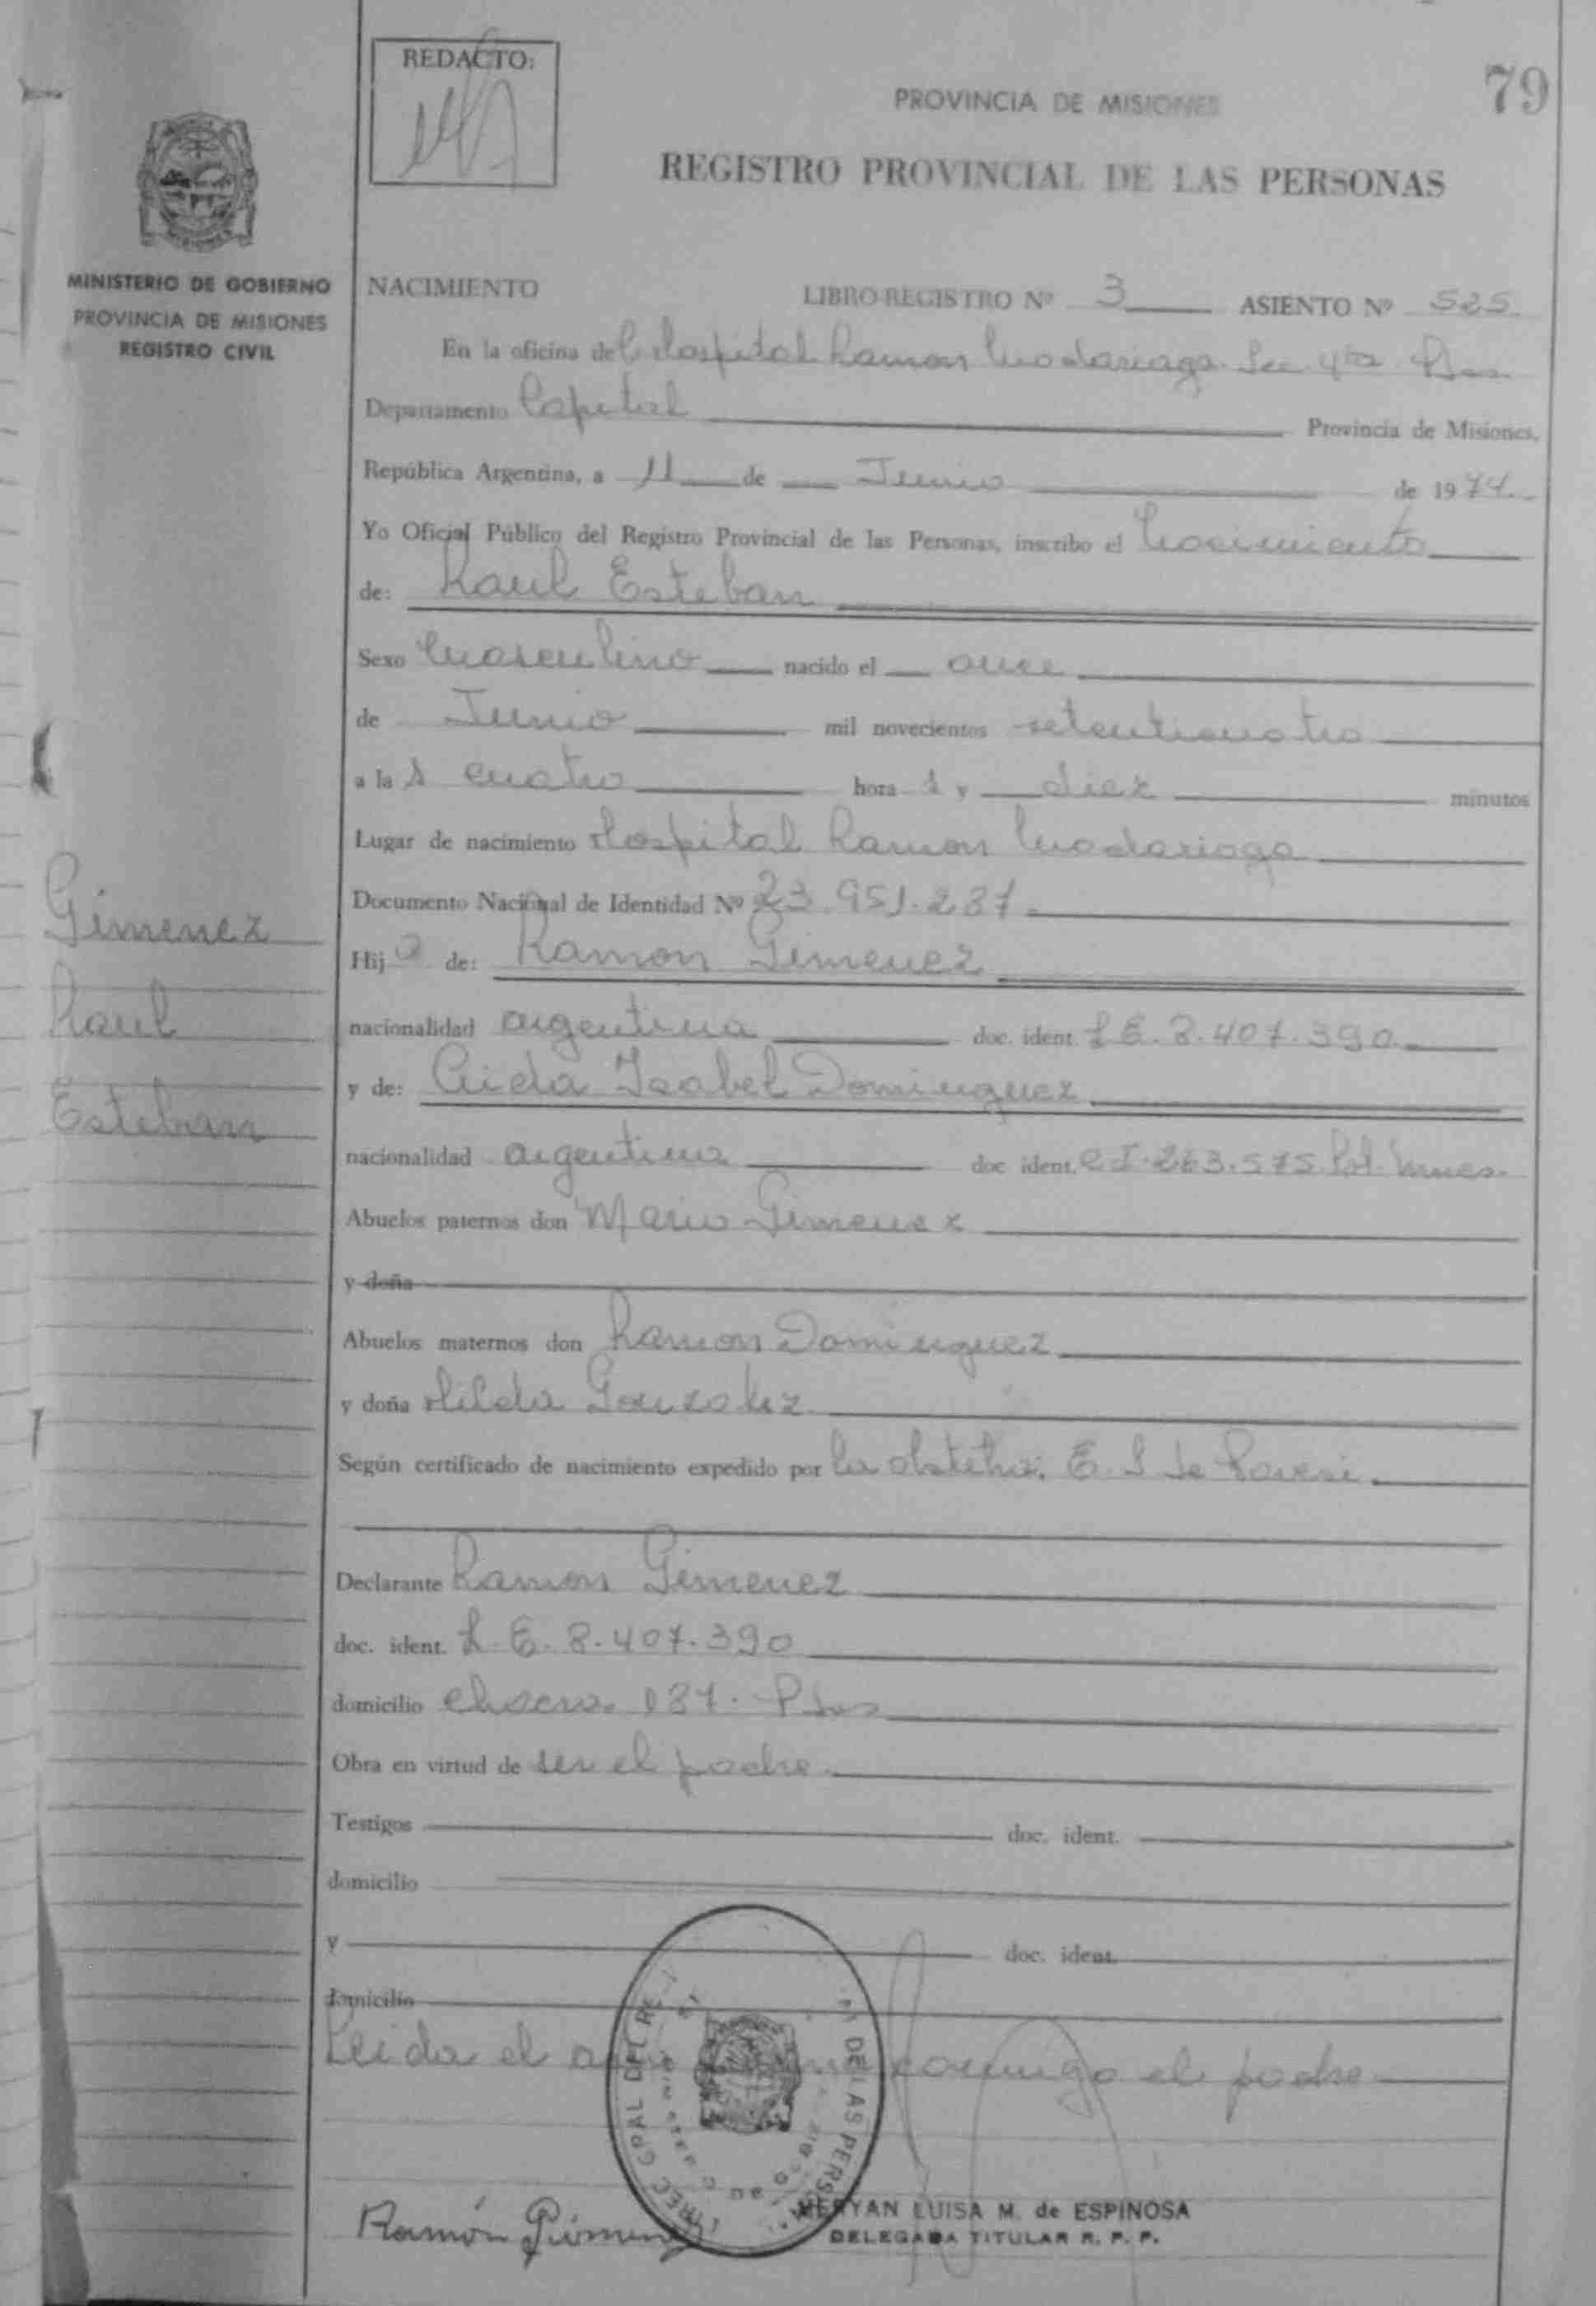 REDACTO:
79
PROVINCIA DE MISIONES
REGISTRO PROVINCIAL DE LAS PERSONAS
MINISTERIO DE GOBIERNO
PROVINCIA DE MISIONES
REGISTRO CIVIL
NACIMIENTO LIBRO-REGISTRO Nº 3 ASIENTO Nº 525
En la oficina del Hospital Ramon Madariaga Sec. 4ta Pdas
Departamento Capital Provincia de Misiones,
República Argentina, a 11 de Junio de 1974
Yo Oficial Público del Registro Provincial de las Personas, inscribo el Nacimiento
de: Raul Esteban
Sexo Masculino nacido el once
de Junio mil novecientos setenticuatro
a las cuatro horas y diez minutos
Lugar de nacimiento Hospital Ramon Madariaga
Documento Nacional de Identidad Nº 23.951.287
Hijo de: Ramon Gimenez
nacionalidad argentina doc. ident. L E. 8.407.390
y de: Aida Isabel Dominguez
nacionalidad argentina doc ident. C.I. 263.575 Pol. Mnes.
Abuelos paternos don Mario Gimenez
y doña
Abuelos maternos don Ramon Dominguez
y doña Hilda Gonzalez
Según certificado de nacimiento expedido por la obstetra. E. S de
Declarante Ramon Gimenez
doc. ident. L. E. 8.407.390
domicilio chacra Pdas
Obra en virtud de ser el padre.
Testigos doc. ident.
domicilio
y doc. ident.
domicilio
Leida el conmigo el padre
Gimenez
Raul
Esteban
DIREC GRAL DEL DE LAS PERS
Ramón Gimenez
MERYAN LUISA M. de ESPINOSA
DELEGADA TITULAR R. P. P.